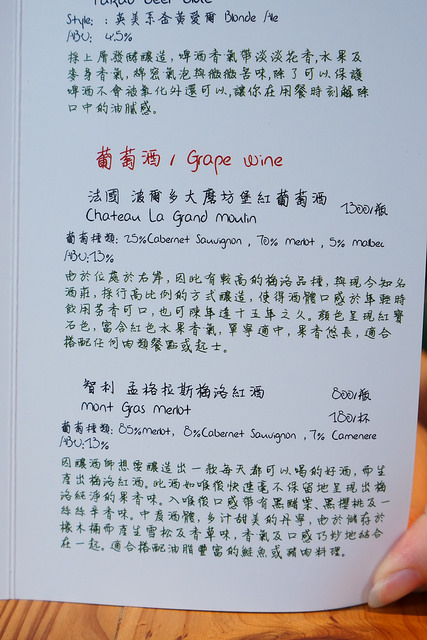 Style: : 英美系金黃愛爾 Blonde Ale
ABV: 4.5%
採上層發酵釀造, 啤酒香氣帶淡淡花香, 水果及
麥芽香氣, 綿密氣泡與微微苦味, 除了可以保護
啤酒不會被氧化外還可以, 讓你在用餐時刻解除
口中的油膩感。
葡萄酒 / Grape wine
法國 波爾多大磨坊堡紅葡萄酒
1300/瓶
Chateau La Grand moulin
葡萄種類: 25%Cabernet Sauvignon , 70% merlot , 5% malbec
ABV:13%
由於位處於右岸, 因此有較高的梅洛品種, 與現今知名
酒莊, 採行高比例的方式釀造, 使得酒體口感於年輕時
飲用芳香可口, 也可陳年達十五年之久。顏色呈現紅寶
石色, 富含紅色水果香氣, 單寧適中, 果香悠長, 適合
搭配任何肉類餐點或起士。
智利 孟格拉斯梅洛紅酒
800/瓶
mont Gras merlot
180/杯
葡萄種類: 85%merlot, 8%Cabernet Sauvignon , 7% Camenere
ABV:13%
因釀酒師想要釀造出一款每天都可以喝的好酒, 而生
產出梅洛紅酒。此酒如喉後快速毫不保留地呈現出梅
洛純淨的果香味。入喉後口感帶有黑醋栗、黑櫻桃及一
絲絲辛香味。中度酒體, 多汁甜美的丹寧, 由於儲存於
橡木桶而產生雪松及香草味, 香氣及口感巧妙地結合
在一起。適合搭配油脂豐富的鮭魚或豬肉料理。